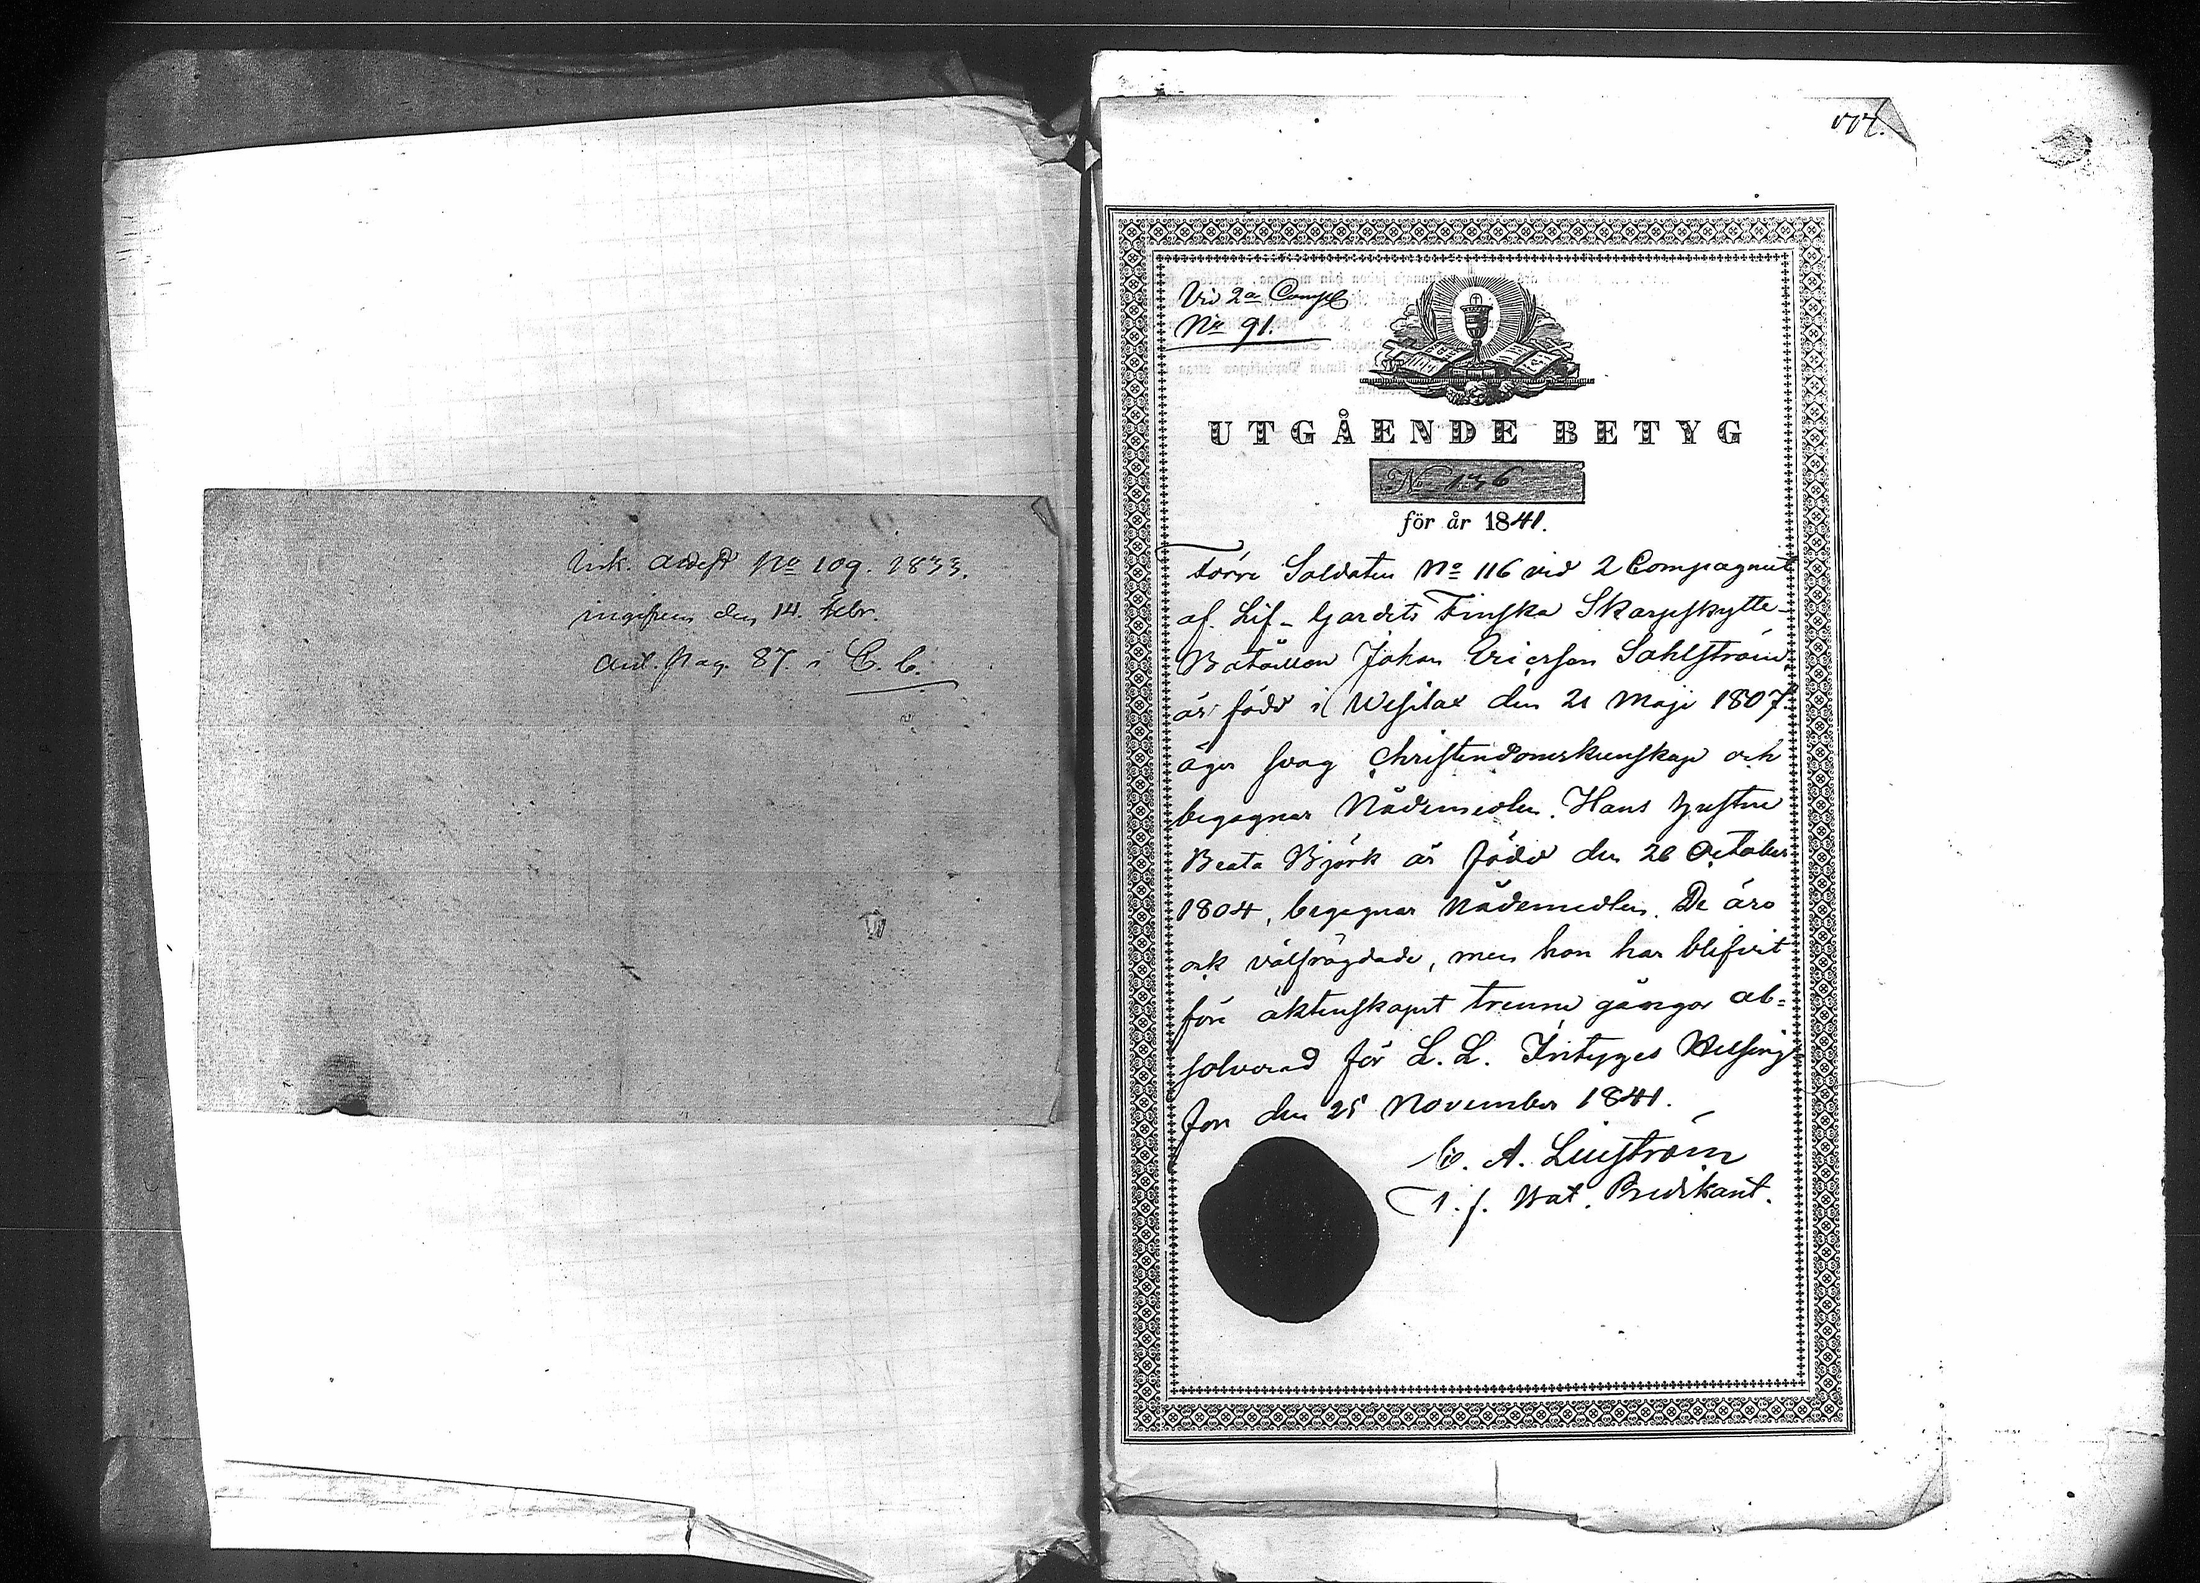 Ink. Attest No 109. 1833.
ingifven den 14. Febr.
Ant. pag. 87. i C. b.
Vid 2a Comp.
No 91.
UTGÅENDE BETYG
No 136
för år 1841.
Förre Soldaten No 116 vid 2 Compagniet
af Lif-Gardets Finska Skarpskytte-
Bataillon Johan Ericsson Sahlström,
är född i Wesilax den 21 Maji 1807.
äger svag Christendomskunskap och
begagnar Nådemedlen. Hans hustru
Beata Björk är född den 26 October
1804, begagnar Nådemedlen. De äro
ock välfrägdade, men hon har blifvit
före äktenskapet trenne gångor ab-
solverad för L. L. Intygas Helsing-
fors den 25 November 1841.
A. Linström
t. f. Bat. Predikant.